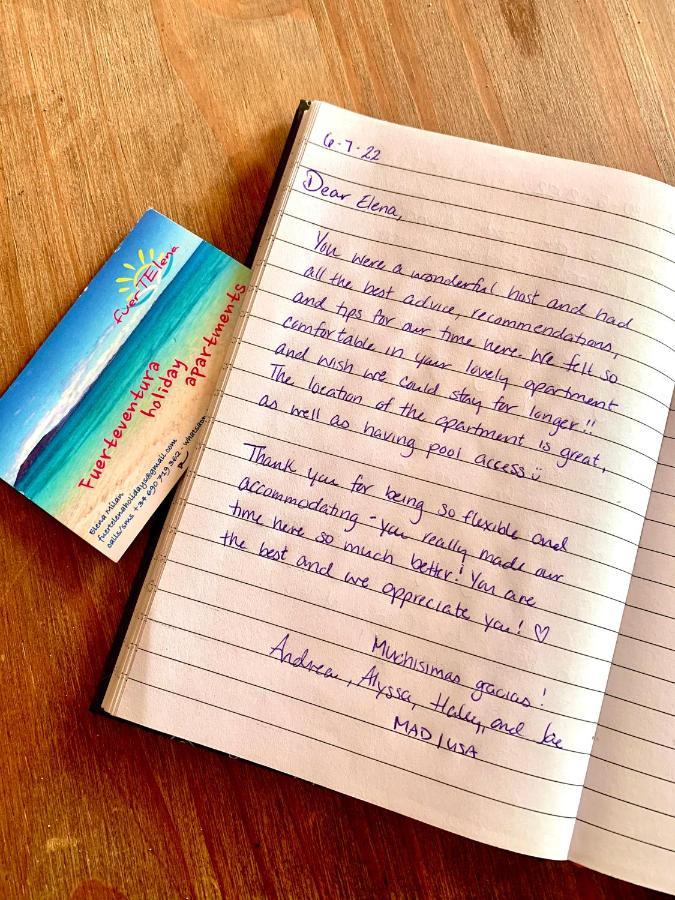 6.7.22
Dear Elena,
You were a wonderful host and had
all the best advice, recommendations,
and tips for our time here. We felt so
comfortable in your lovely apartment
and wish we could stay for longer!!
The location of the apartment is great,
as well as having pool access.
Thank you for being so flexible and
accommodating - you really made our
time here so much better! You are
the best and we appreciate you! ♡
Muchisimas gracias!
Andrea, Alyssa, Haley, and
MAD / USA
fuerTElena
Fuerteventura
holiday
apartments
Elena Milan
fuertelenaholidays@gmail.com
calls/sms +34 690 719 362 - whatsapp